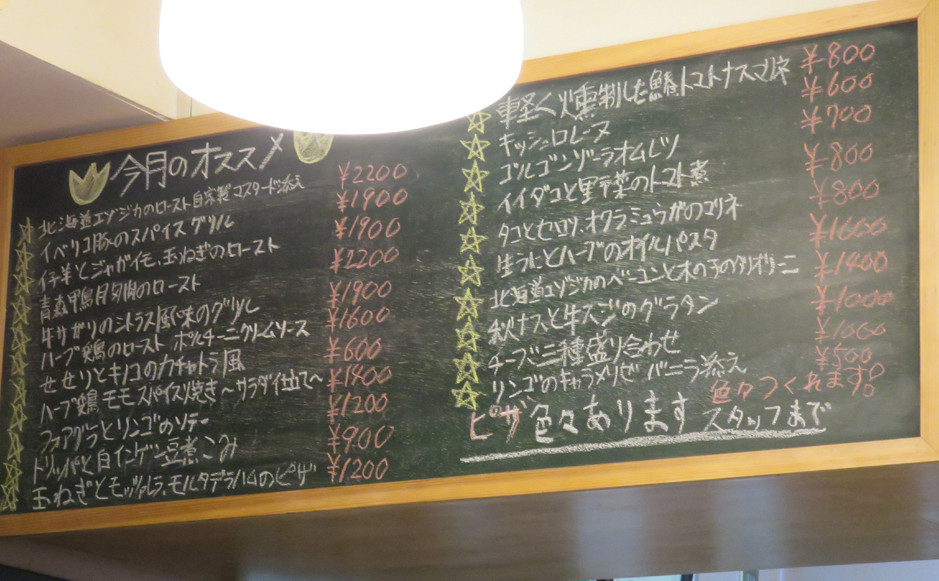 今月のオススメ
北海道エゾジカのロースト自家製コスタード添え ¥2200
イベリコ豚のスパイスグリル ¥1900
仔羊とジャガイモ、玉ねぎのロースト ¥1900
青森鴨胸肉のロースト ¥2200
牛サガリのシトラス風味のグリル ¥1900
ハーブ鶏のロースト ポルチーニクリームソース ¥1600
せせりとキノコのカチャトラ風 ¥600
ハーブ鶏モモスパイス焼き〜サラダ仕立て〜 ¥1400
フォアグラとリンゴのソテー ¥1200
トリッパと白インゲン豆煮こみ ¥900
玉ねぎとモッツァレラ、モルタデラハムのピザ ¥1200
軽く燻製した鯖トマトナスマリネ ¥800
キッシュロレーヌ ¥600
ゴルゴンゾーラオムレツ ¥700
イイダコと里野菜のトマト煮 ¥800
タコとセロリ、オクラミョウガのマリネ ¥800
生うにとハーブのオイルパスタ ¥1600
北海道エゾジカのベーコンと木の子のタリオリーニ ¥1400
秋ナスと牛スジのグラタン ¥1000
チーズ三種盛り合わせ ¥1000
リンゴのキャラメリゼ バニラ添え ¥500
色々つくれます!
ピザ色々あります スタッフまで